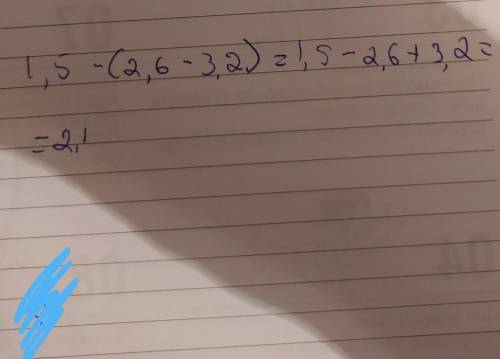 1,5 -(2,6 - 3,2) = 1,5 - 2,6 + 3,2 =
= 2,1